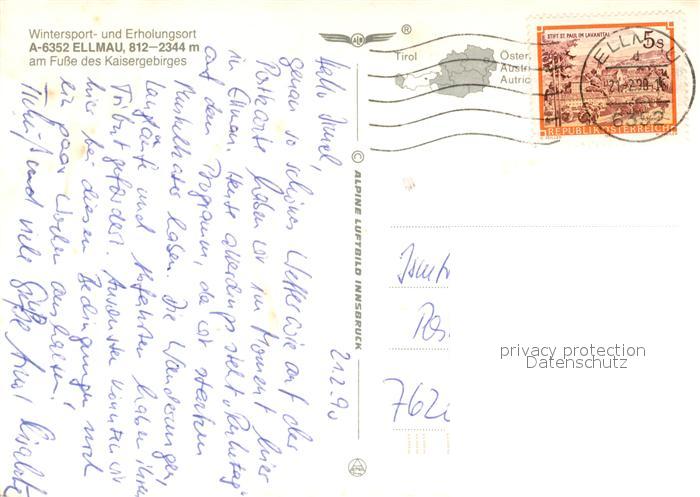 Wintersport- und Erholungsort
A-6352 ELLMAU, 812–2344 m
am Fuße des Kaisergebirges
®
Tirol
Öster
Austri
Autric
STIFT ST. PAUL IM LAVANTTAL
5 S
REPUBLIK ÖSTERREICH
ELLMAU
21.-2.90
6352
© ALPINE LUFTBILD INNSBRUCK
21.2.90
Hallo
genau so schönes Wetter wie auf der
Postkarte haben wir im Moment hier
in Ellmau. Heute allerdings steht "Ruhetag"
auf dem Programm, da wir starken
Muskelkater haben. Die Wanderungen,
Langläufe und Abfahrten haben ihren
Tribut gefordert. Ansonsten könnten wir
hier bei diesen Bedingungen noch
ein paar Wochen aushalten!
Tschüß und viele Grüße
Pos
762
privacy protection
Datenschutz